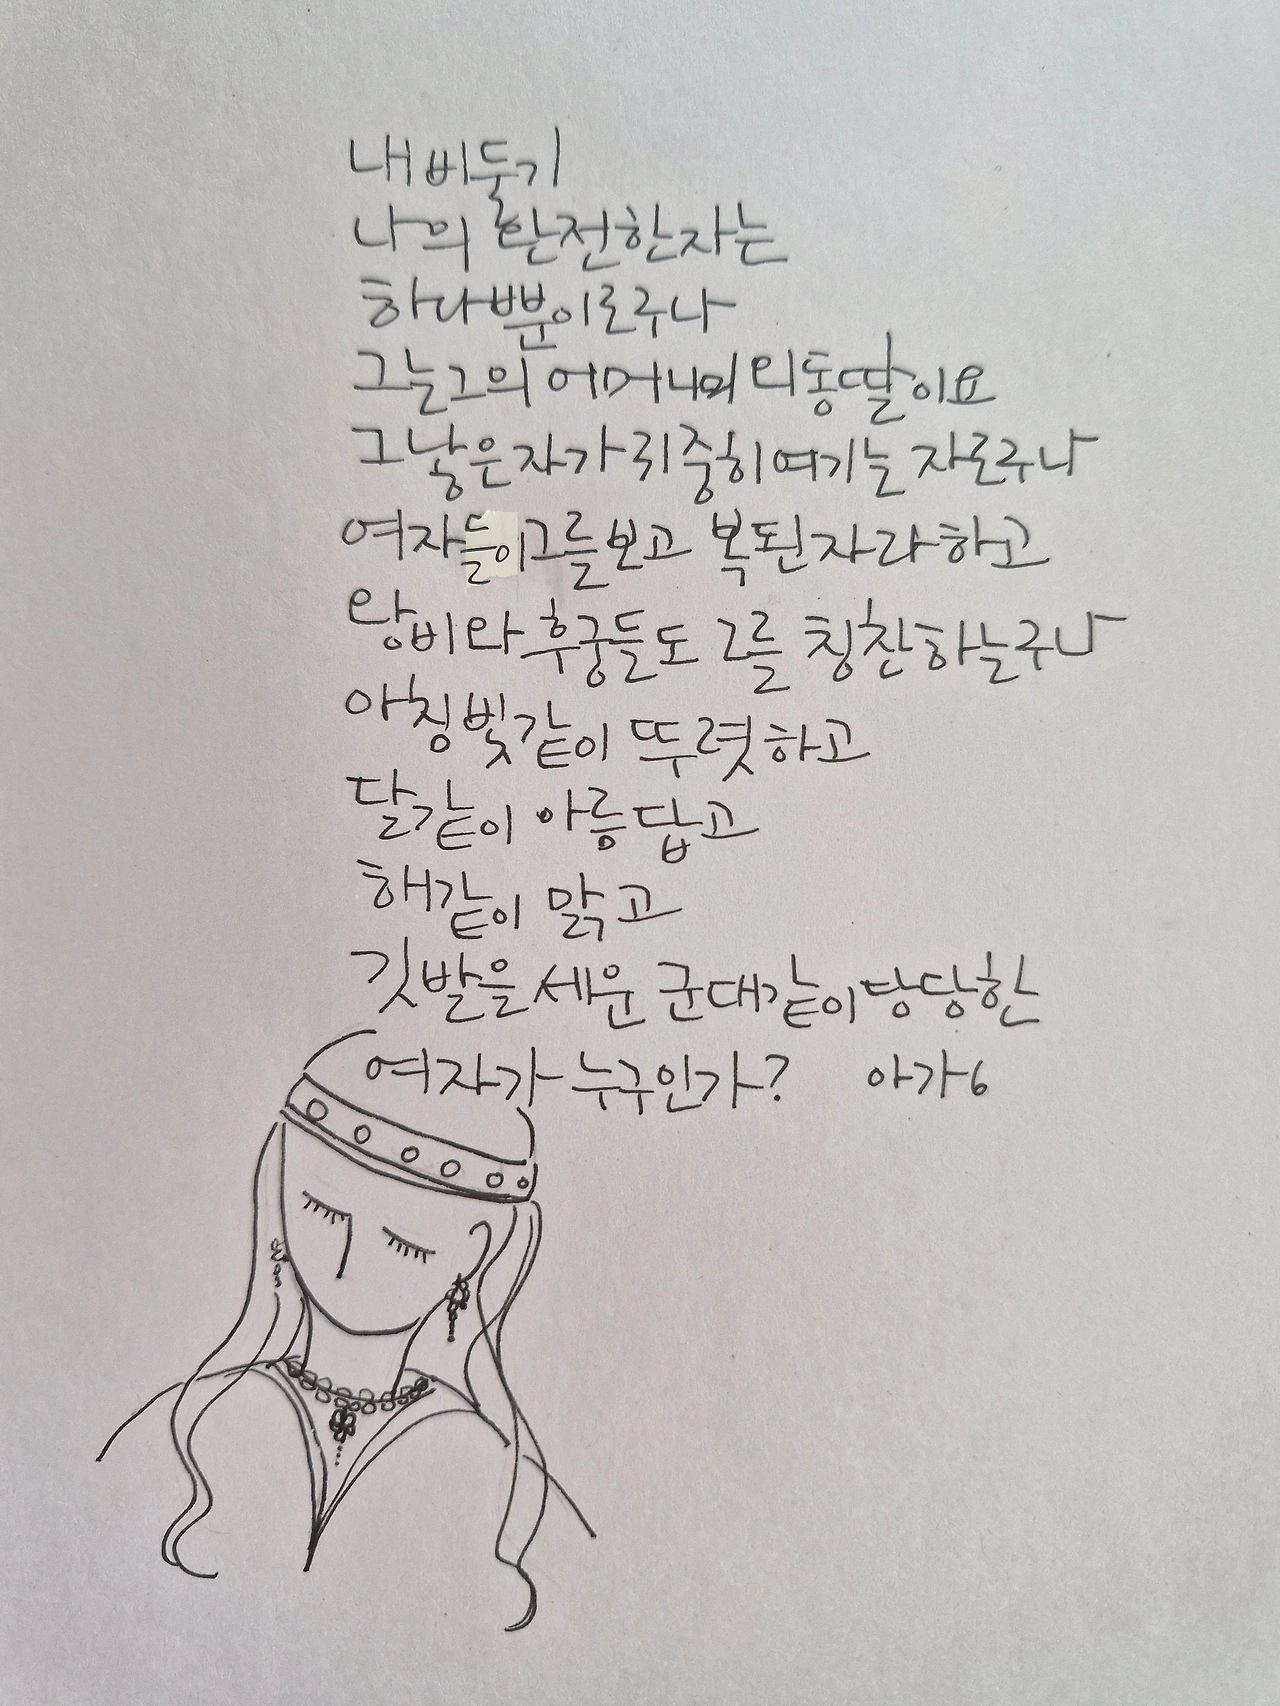 내 비둘기
나의 완전한 자는
하나뿐이로구나
그는 그의 어머니의 외동딸이요
그 낳은 자가 귀중히 여기는 자로구나
여자들이 그를 보고 복된 자라 하고
왕비와 후궁들도 그를 칭찬하는구나
아침빛같이 뚜렷하고
달같이 아름답고
해같이 맑고
깃발을 세운 군대같이 당당한
여자가 누구인가? 아가6